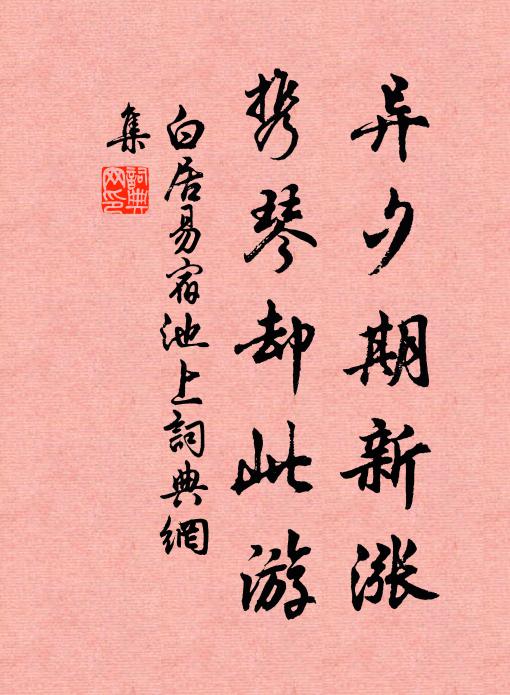 异夕期新涨
携琴却此游
白居易宿池上詞典網
集
詞典网印